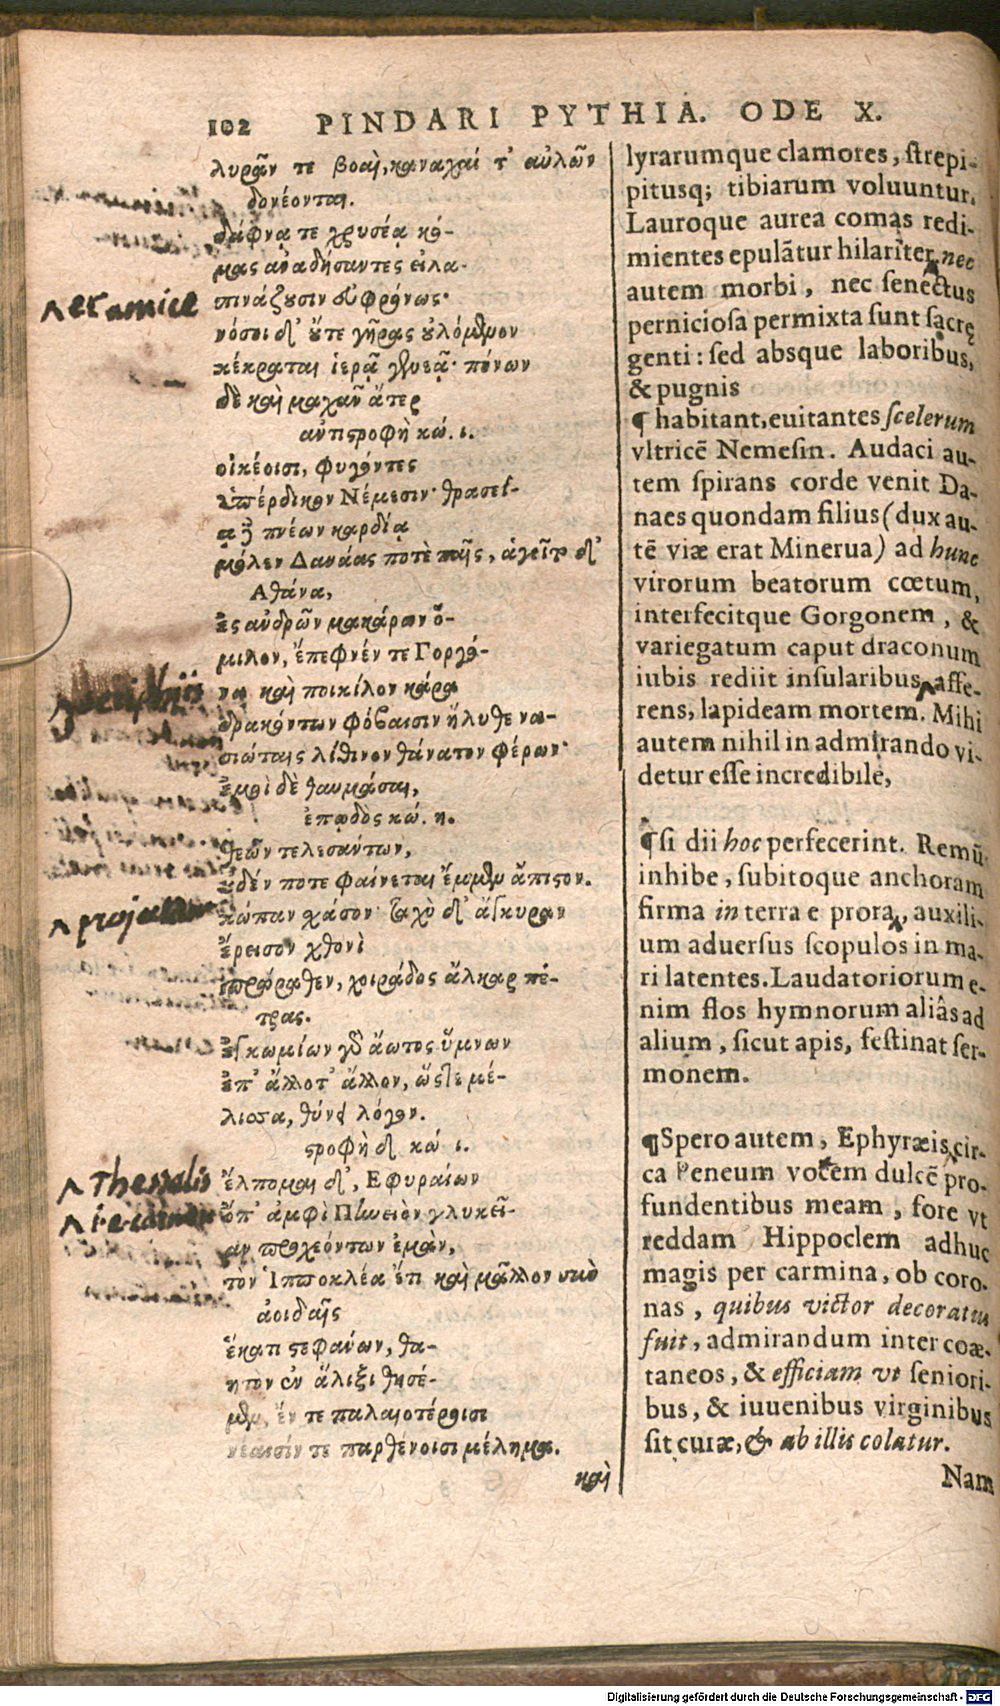 102 PINDARI PYTHIA. ODE X.
λυρᾶν τε βοαὶ, καναχαί τ' αὐλῶν
δονέονται.
δάφνᾳ τε χρυσέᾳ κό-
μας ἀναδήσαντες εἰλα-
πινάζουσιν εὐφρόνως·
νόσοι δ' οὔτε γῆρας οὐλόμενον
κέκραται ἱερᾷ γενεᾷ· πόνων
δὲ καὶ μαχᾶν ἄτερ
ἀντιστροφὴ κώ. ι.
οἰκέοισι, φυγόντες
ὑπέρδικον Νέμεσιν· θρασεί-
ᾳ δὲ πνέων καρδίᾳ
μόλεν Δανάας ποτὲ παῖς, ἁγεῖτο δ'
Αθάνα,
ἐς ἀνδρῶν μακάρων ὅ-
μιλον, ἔπεφνέν τε Γοργό-
να καὶ ποικίλον κάρα
δρακόντων φόβαισιν ἤλυθε να-
σιώταις λίθινον θάνατον φέρων·
ἐμοὶ δὲ θαυμάσαι,
ἐπῳδὸς κώ. η.
θεῶν τελεσάντων,
οὐδέν ποτε φαίνεται ἔμμεν ἄπιστον.
κώπαν χάσον· ταχὺ δ' ἄγκυραν
ἔρεισον χθονὶ
πρώραθεν, χοιράδος ἄλκαρ πέ-
τρας.
ἐγκωμίων γὰρ ἄωτος ὕμνων
ἐπ' ἄλλοτ' ἄλλον, ὥστε μέ-
λισσα, θύνει λόγον.
στροφὴ δ κώ ι.
ἔλπομαι δ', Εφυραίων
ὄπ' ἀμφὶ Πηνειὸν γλυκεῖ-
αν προχεόντων ἐμὰν,
τὸν Ἱπποκλέα ἔτι καὶ μᾶλλον σὺν
ἀοιδαῖς
ἕκατι στεφάνων, θα-
ητὸν ἐν ἅλιξι θησέ-
μεν, ἔν τε παλαιοτέροισι
νέαισίν τε παρθένοισι μέλημα.
καὶ
lyrarumque clamores, strepi-
pitusq; tibiarum voluuntur.
Lauroque aurea comas redi-
mientes epulātur hilariter, nec
autem morbi, nec senectus
perniciosa permixta sunt sacrę
genti: sed absque laboribus,
& pugnis
¶ habitant, euitantes scelerum
vltricē Nemesin. Audaci au-
tem spirans corde venit Da-
naes quondam filius (dux au-
tē viæ erat Minerua) ad hunc
virorum beatorum cœtum,
interfecitque Gorgonem, &
variegatum caput draconum
iubis rediit insularibus, affe-
rens, lapideam mortem. Mihi
autem nihil in admirando vi-
detur esse incredibile,
¶ si dii hoc perfecerint. Remū
inhibe, subitoque anchoram
firma in terra e prora, auxili-
um aduersus scopulos in ma-
ri latentes. Laudatoriorum e-
nim flos hymnorum aliâs ad
alium, sicut apis, festinat ser-
monem.
¶ Spero autem, Ephyræis cir-
ca Peneum vocem dulcē pro-
fundentibus meam, fore vt
reddam Hippoclem adhuc
magis per carmina, ob coro-
nas, quibus victor decoratus
fuit, admirandum inter coæ-
taneos, & efficiam vt seniori-
bus, & iuuenibus virginibus
sit curæ, & ab illis colatur.
Nam
Thessalis
Digitalisierung gefördert durch die Deutsche Forschungsgemeinschaft - DFG